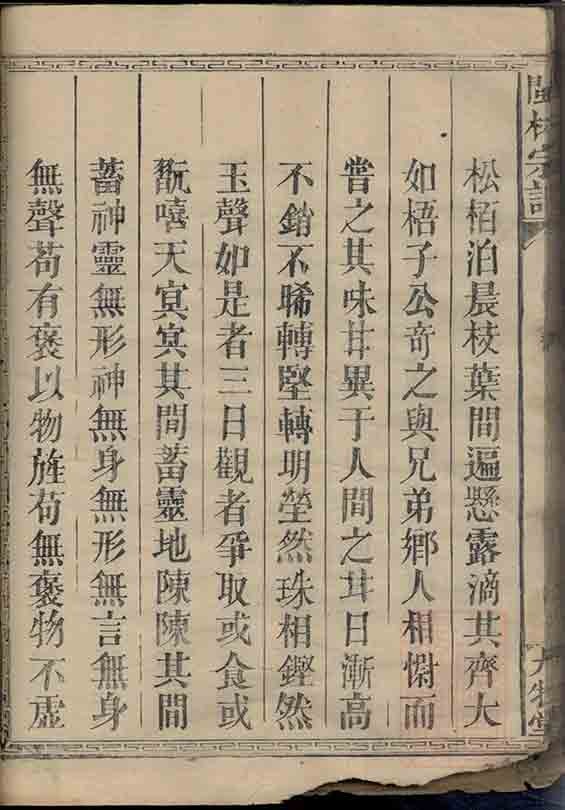 松栢泊晨枝葉間遍懸露滴其齊大
如梧子公奇之與兄弟鄉人相懈而
嘗之其味甘異于人間之甘日漸高
不銷不晞轉堅轉明瑩然珠相鏗然
玉聲如是者三日觀者爭取或食或
翫嘻天㝠㝠其間蓄靈地陳陳其間
蓄神靈無形神無身無形無言無身
無聲苟有褒以物旌苟無褒物不虛
宗譜